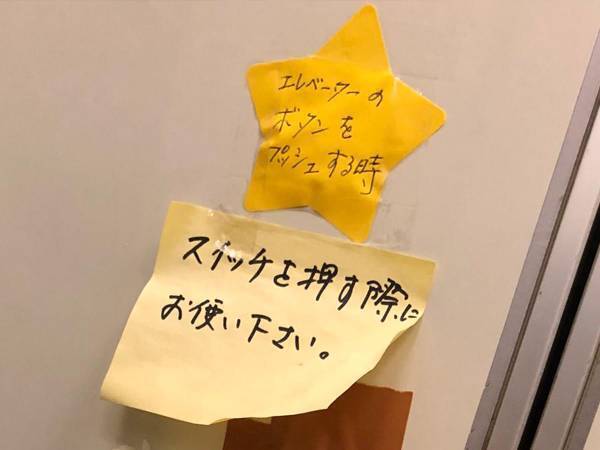 エレベーターの
ボタンを
プッシュする時
スイッチを押す際に
お使い下さい。